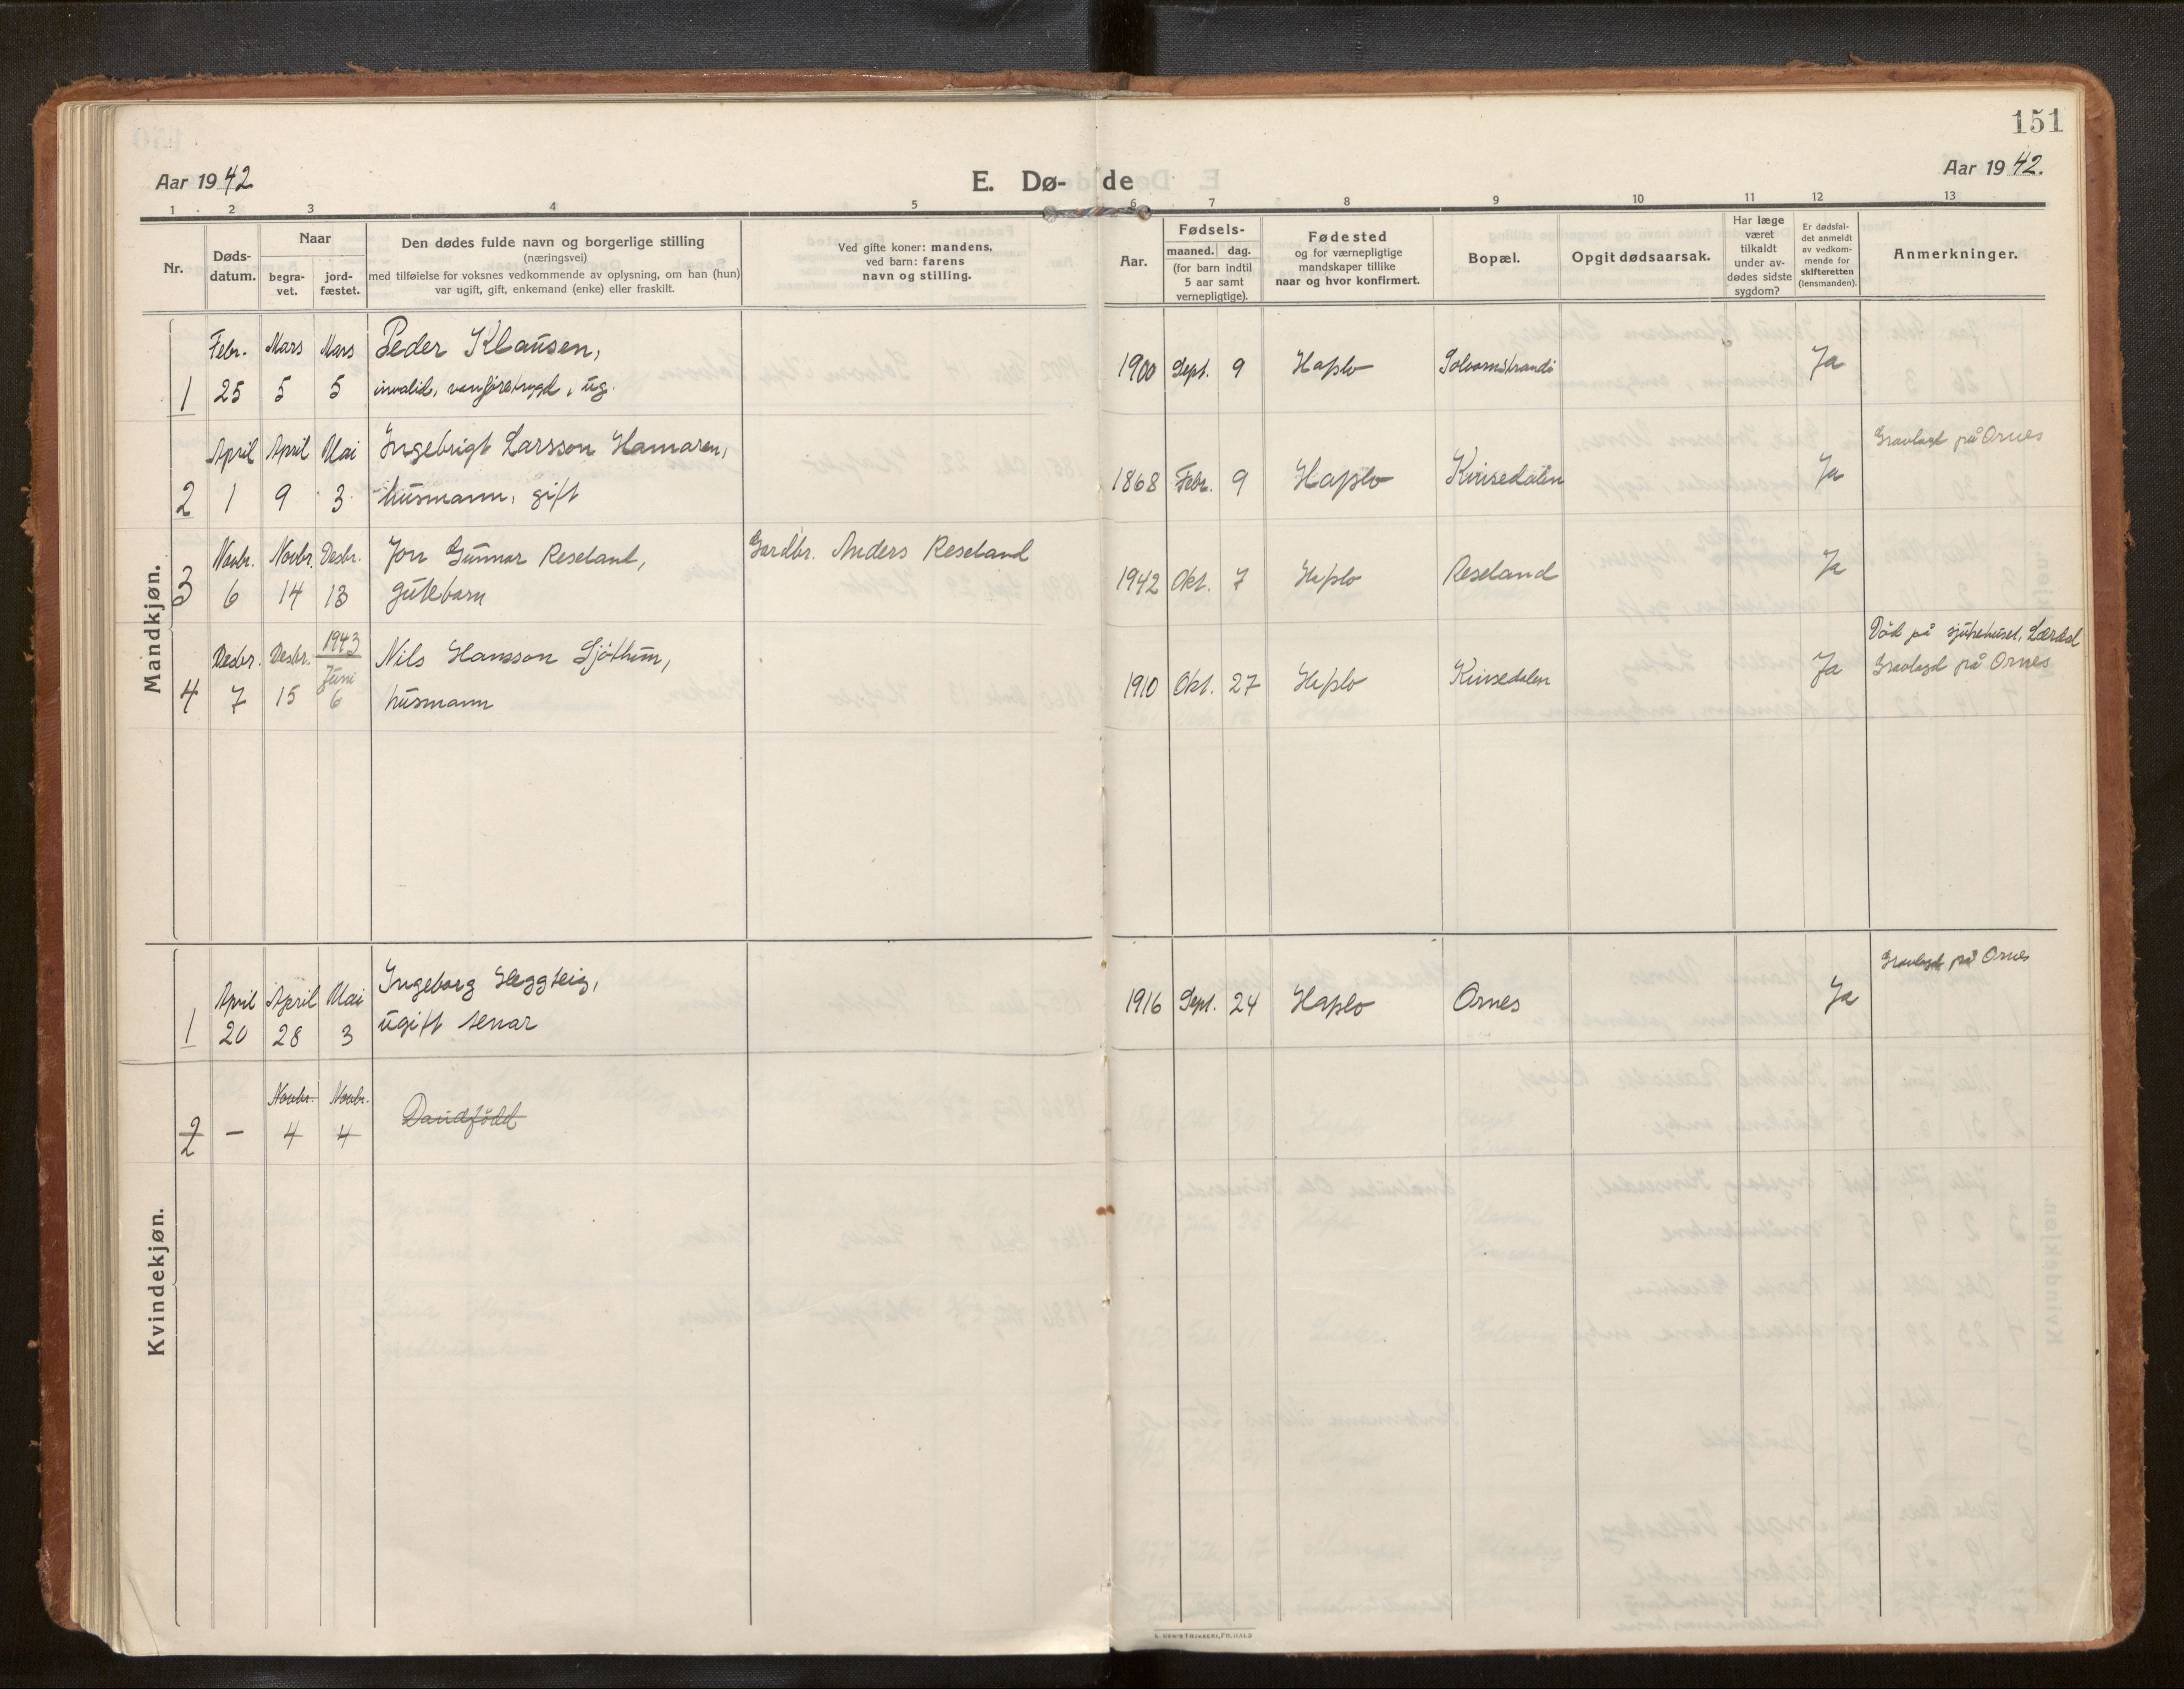 151
Aar 1942
E. Dø- de
Aar 1942.
1 2 3 4 5 6 7 8 9 10 11 12 13
Nr.
Døds-
datum.
Naar
begra-
vet.
jord-
fæstet.
Den dødes fulde navn og borgerlige stilling
(næringsvei)
med tilføielse for voksnes vedkommende av oplysning, om han (hun)
var ugift, gift, enkemand (enke) eller fraskilt.
Ved gifte koner: mandens,
ved barn: farens
navn og stilling.
Aar.
Fødsels-
maaned. dag.
(for barn indtil
5 aar samt
vernepligtige).
Fødested
og for værnepligtige
mandskaper tillike
naar og hvor konfirmert.
Bopæl.
Opgit dødsaarsak.
Har læge
været
tilkaldt
under av-
dødes sidste
sygdom?
Er dødsfal-
det anmeldt
av vedkom-
mende for
skifteretten
(lensmanden).
Anmerkninger.
Mandkjøn.
Febr. Mars Mars Peder Klausen,
1 25 5 5 invalid, vanføretrygd, ug.
1900 Sept. 9 Hafslo Solvornstrandi Ja
April April Mai Ingebrigt Larsson Hamaren,
2 1 9 3 husmann, gift
1868 Febr. 9 Hafslo Kinsedalen Ja
Gravlagd på Ornes
Novbr. Novbr. Desbr. Jon Gunnar Reseland, Gardbr. Anders Reseland
3 6 14 13 gutebarn
1942 Okt. 7 Hafslo Reseland Ja
1943
Desbr. Desbr. Juni Nils Hansson Sjøthun,
4 7 15 6 husmann
1910 Okt. 27 Hafslo Kinsedalen Ja
Död på sjukehuset, Lærdal
Gravlagd på Ornes
Kvindekjøn.
April April Mai Ingeborg Heggteig,
1 20 28 3 ugift tenar
1916 Sept. 24 Hafslo Ornes Ja
Gravlagd på Ornes
Novbr. Novbr.
2 — 4 4 Daudfödd